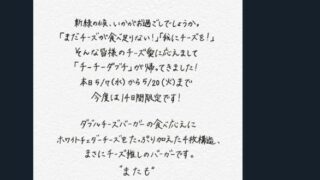 新緑の候、いかがお過ごしでしょうか。
「まだチーズが食べ足りない!」「私にチーズを!」
そんな皆様のチーズ愛に応えまして
「チーチーダブチ」が帰ってきました!
本日5/7(水)から5/20(火)まで
今度は14日間限定です!
ダブルチーズバーガーの食べ応えに
ホワイトチェダーチーズをたっぷり加えた千枚構造、
まさにチーズ推しのバーガーです。
"またも"